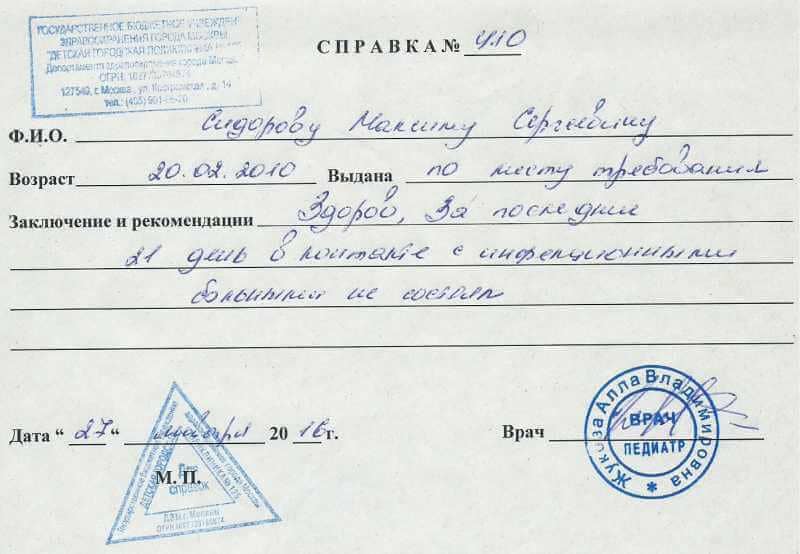 ГОСУДАРСТВЕННОЕ БЮДЖЕТНОЕ УЧРЕЖДЕН
ЗДРАВООХРАНЕНИЯ ГОРОДА МОСКВЫ
"ДЕТСКАЯ ГОРОДСКАЯ ПОЛИКЛИНИКА
Департамента здравоохранения города Москвы
ОГРН
127549, г. Москва, ул. Костромская, д. 14
тел.: (495)
СПРАВКА № 410
Ф.И.О. Сидорову Максиму Сергеевичу
Возраст 20.02.2010 Выдана по месту требования
Заключение и рекомендации Здоров, За последние
21 день в контакте с инфекционными
больными не состоял
Дата "27" 2016г.
Врач
М. П.
Для
справок
ДЗМ г. Москвы
Жукова Алла Владимировна
ВРАЧ
ПЕДИАТР